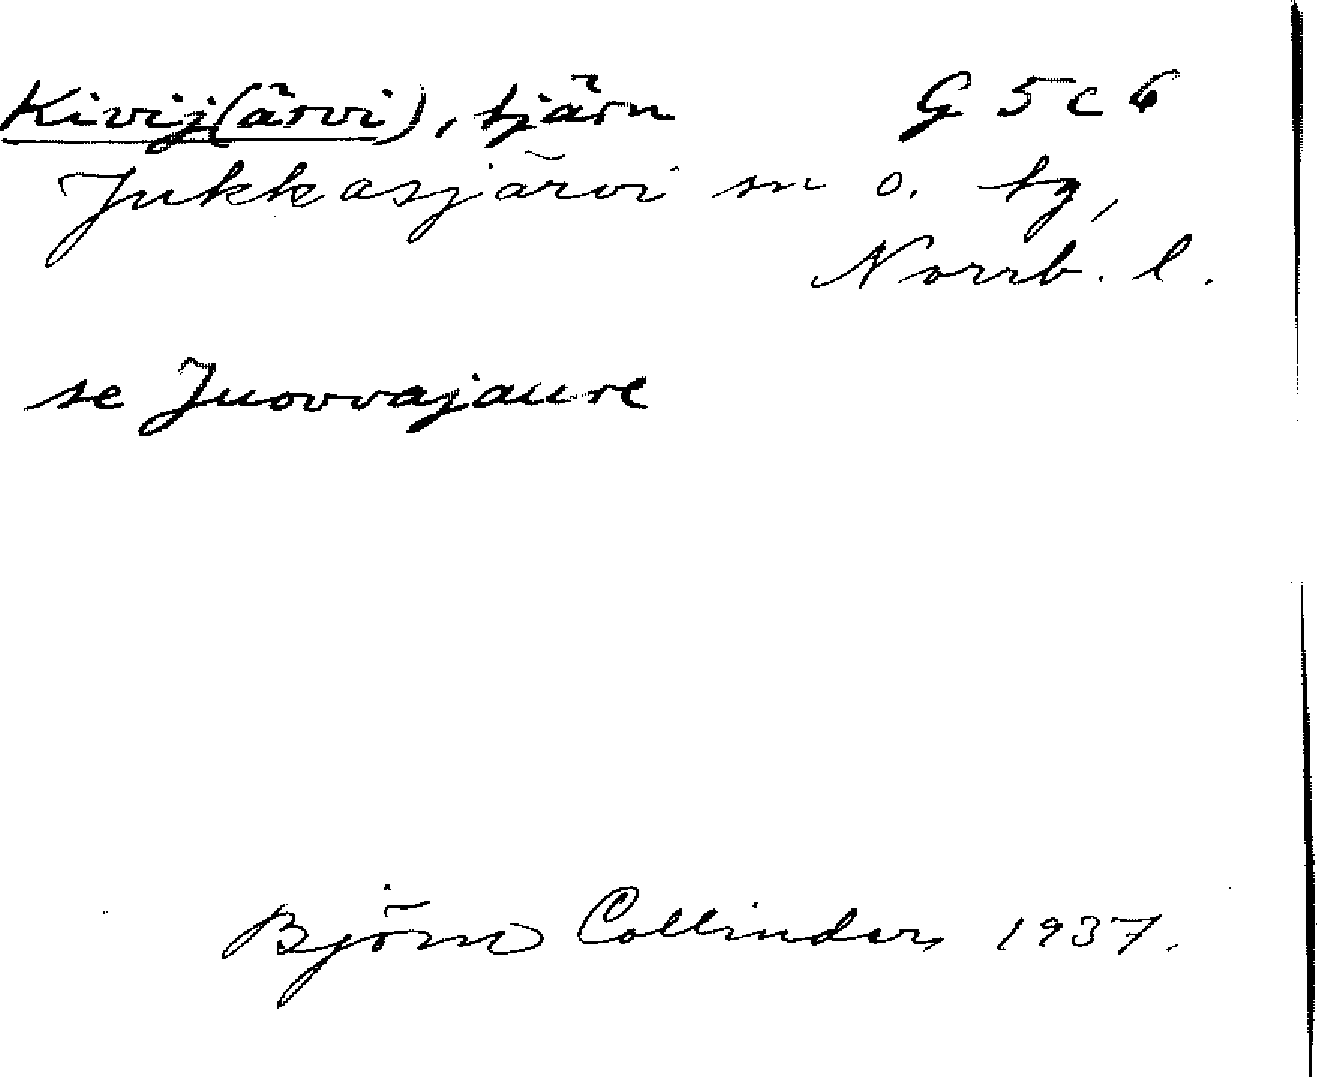 Kivij(ärvi), tjärn G 5 c 6
Jukkasjärvi sn o. tg,
Norrb. l.
se Juovvajaure
Björn Collinder, 1937.